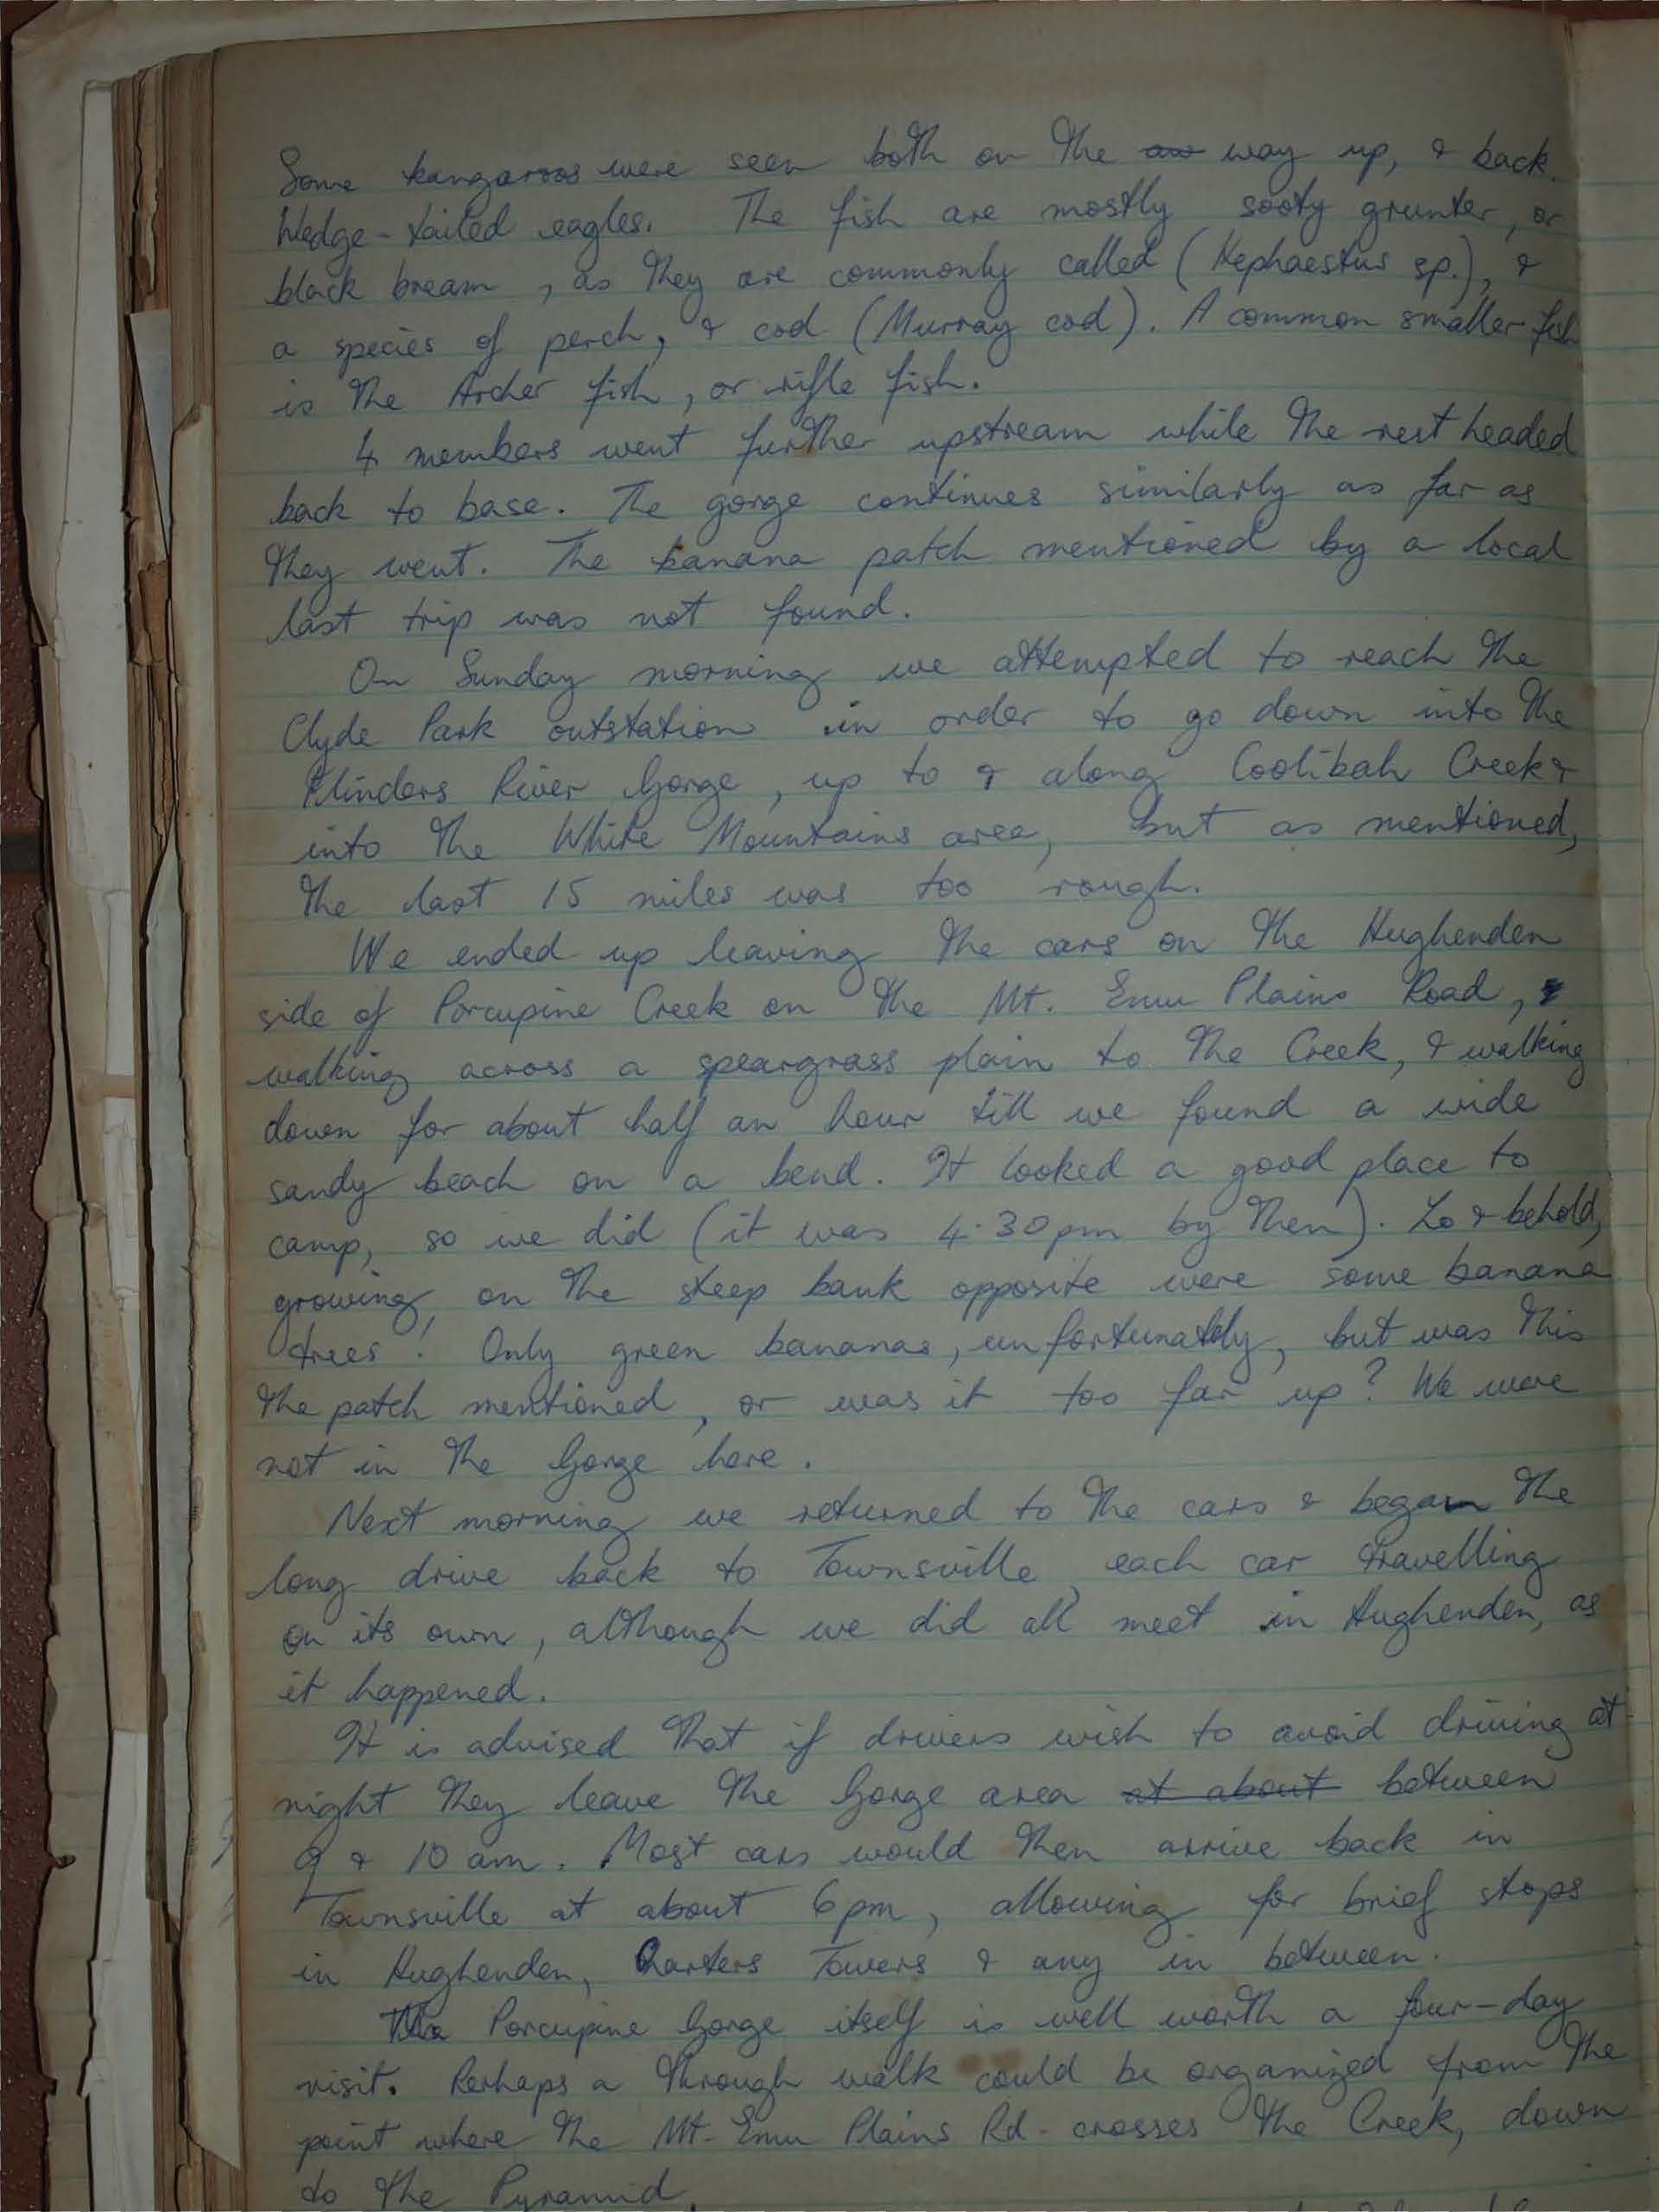 Some kangaroos were seen both on the way up, & back.
Wedge-tailed eagles. The fish are mostly sooty grunter, or
black bream, as they are commonly called (Hephaestus sp.), &
a species of perch, & cod (Murray cod). A common smaller fish
is the Archer fish, or rifle fish.
4 members went further upstream while the rest headed
back to base. The gorge continues similarly as far as
they went. The banana patch mentioned by a local
last trip was not found.
On Sunday morning we attempted to reach the
Clyde Park outstation in order to go down into the
Flinders River Gorge, up to & along Coolibah Creek &
into the White Mountains area, but as mentioned,
the last 15 miles was too rough.
We ended up leaving the cars on the Hughenden
side of Porcupine Creek on the Mt. Emu Plains Road,
walking across a speargrass plain to the Creek, & walking
down for about half an hour till we found a wide
sandy beach on a bend. It looked a good place to
camp, so we did (it was 4.30pm by then). Lo & behold,
growing on the steep bank opposite were some banana
trees! Only green bananas, unfortunately, but was this
the patch mentioned, or was it too far up? We were
not in the Gorge here.
Next morning we returned to the cars & began the
long drive back to Townsville, each car travelling
on its own, although we did all meet in Hughenden, as
it happened.
It is advised that if drivers wish to avoid driving at
night they leave the Gorge area at about between
9 & 10 am. Most cars would then arrive back in
Townsville at about 6pm, allowing for brief stops
in Hughenden, Charters Towers & any in between.
The Porcupine Gorge itself is well worth a four-day
visit. Perhaps a through walk could be organized from the
point where the Mt. Emu Plains Rd. crosses the Creek, down
to the Pyramid.